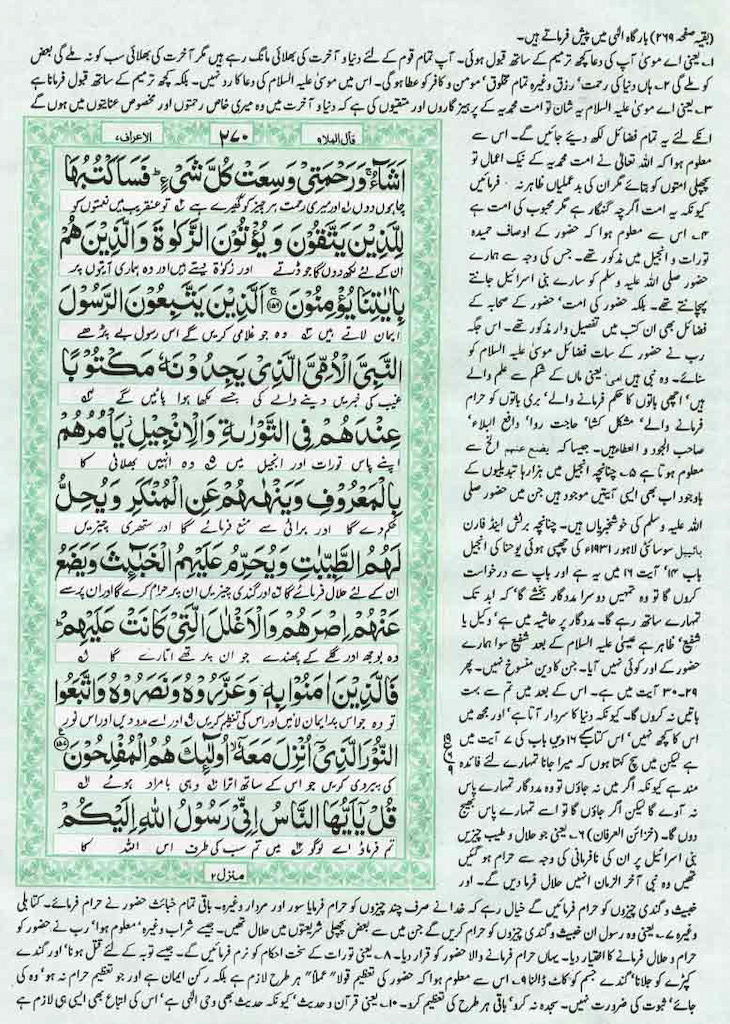 (بقیہ صفحہ ۲۶۹) بارگاہ الٰہی میں پیش فرماتے ہیں۔
۱۔ یعنی اے موسیٰ آپ کی دعا کچھ ترمیم کے ساتھ قبول ہوئی۔ آپ تمام قوم کے لئے دنیا و آخرت کی بھلائی مانگ رہے ہیں مگر آخرت کی بھلائی سب کو نہ ملے گی بعض
کو ملے گی ۲۔ ہاں دنیا کی رحمت' رزق وغیرہ تمام مخلوق' مومن و کافر کو عطا ہو گی۔ اس میں موسیٰ علیہ السلام کی دعا کا رد نہیں۔ بلکہ کچھ ترمیم کے ساتھ قبول فرمانا ہے
۳۔ یعنی اے موسیٰ علیہ السلام یہ شان تو امت محمدیہ کے پرہیز گاروں اور متقیوں کی ہے کہ دنیا و آخرت میں وہ میری خاص رحمتوں اور مخصوص عنایتوں میں ہوں گے
قال الملاء ۹
۲۷۰
الاعراف ۷
اَشَآءُ ۚ وَرَحْمَتِیْ وَسِعَتْ كُلَّ شَیْءٍ ؕ فَسَاَكْتُبُهَا
چاہوں دوں اور میری رحمت ہر چیز کو گھیرے ہے تو عنقریب میں نعمتوں کو
لِلَّذِیْنَ یَتَّقُوْنَ وَ یُؤْتُوْنَ الزَّكٰوةَ وَالَّذِیْنَ هُمْ
ان کے لئے لکھ دوں گا جو ڈرتے اور زکوٰۃ دیتے ہیں اور وہ ہماری آیتوں پر
بِاٰیٰتِنَا یُؤْمِنُوْنَ ﴿۱۵۶﴾ اَلَّذِیْنَ یَتَّبِعُوْنَ الرَّسُوْلَ
ایمان لاتے ہیں وہ جو غلامی کریں گے اس رسول بے پڑھے
النَّبِیَّ الْاُمِّیَّ الَّذِیْ یَجِدُوْنَهٗ مَكْتُوْبًا
غیب کی خبریں دینے والے کی جسے لکھا ہوا پائیں گے
عِنْدَهُمْ فِی التَّوْرٰىةِ وَالْاِنْجِیْلِ ؗ یَاْمُرُهُمْ
اپنے پاس تورات اور انجیل میں وہ انہیں بھلائی کا
بِالْمَعْرُوْفِ وَیَنْهٰىهُمْ عَنِ الْمُنْكَرِ وَیُحِلُّ
حکم دے گا اور برائی سے منع فرمائے گا اور ستھری چیزیں
لَهُمُ الطَّیِّبٰتِ وَیُحَرِّمُ عَلَیْهِمُ الْخَبٰٓىِٕثَ وَیَضَعُ
ان کے لئے حلال فرمائے گا اور گندی چیزیں ان پر حرام کرے گا اور ان پر سے
عَنْهُمْ اِصْرَهُمْ وَالْاَغْلٰلَ الَّتِیْ كَانَتْ عَلَیْهِمْ ؕ
وہ بوجھ اور گلے کے پھندے جو ان پر تھے اتارے گا
فَالَّذِیْنَ اٰمَنُوْا بِهٖ وَعَزَّرُوْهُ وَنَصَرُوْهُ وَاتَّبَعُوا
تو وہ جو اس پر ایمان لائیں اور اس کی تعظیم کریں اور اسے مدد دیں اور اس نور
النُّوْرَ الَّذِیْۤ اُنْزِلَ مَعَهٗۤ ۙ اُولٰٓىِٕكَ هُمُ الْمُفْلِحُوْنَ ﴿۱۵۷﴾
کی پیروی کریں جو اس کے ساتھ اترا وہی بامراد ہوئے
قُلْ یٰۤاَیُّهَا النَّاسُ اِنِّیْ رَسُوْلُ اللّٰهِ اِلَیْكُمْ
تم فرماؤ اے لوگو میں تم سب کی طرف اس اللہ کا
منزل ۲
انکے لئے یہ تمام فضائل لکھ دیئے جائیں گے۔ اس سے
معلوم ہوا کہ اللہ تعالیٰ نے امت محمدیہ کے نیک اعمال تو
پچھلی امتوں کو بتائے مگر ان کی بدعملیاں ظاہر نہ فرمائیں
کیونکہ یہ امت اگرچہ گنہگار ہے مگر محبوب کی امت ہے
۴۔ اس سے معلوم ہوا کہ حضور کے اوصاف حمیدہ
تورات و انجیل میں مذکور تھے۔ جس کی وجہ سے ہمارے
حضور صلی اللہ علیہ وسلم کو سارے بنی اسرائیل جانتے
پہچانتے تھے۔ بلکہ حضور کی امت' حضور کے صحابہ کے
فضائل بھی ان کتب میں تفصیل وار مذکور تھے۔ اس جگہ
رب نے حضور کے سات فضائل موسیٰ علیہ السلام کو
سنائے۔ وہ نبی ہیں امی یعنی ماں کے شکم سے علم والے
ہیں' اچھی باتوں کا حکم فرمانے والے' بری باتوں کو حرام
فرمانے والے' مشکل کشا' حاجت روا' دافع البلاء'
صاحب الجود و العطا ہیں۔ جیسا کہ یضع عنہم الخ سے
معلوم ہوتا ہے ۵۔ چنانچہ انجیل میں ہزارہا تبدیلیوں کے
باوجود اب بھی ایسی آیتیں موجود ہیں جن میں حضور صلی
اللہ علیہ وسلم کی خوشخبریاں ہیں۔ چنانچہ برٹش اینڈ فارن
بائیبل سوسائٹی لاہور ۱۹۳۱ء کی چھپی ہوئی یوحنا کی انجیل
باب ۱۴' آیت ۱۶ میں یہ ہے اور باپ سے درخواست
کروں گا تو وہ تمہیں دوسرا مددگار بخشے گا' کہ ابد تک
تمہارے ساتھ رہے گا۔ مددگار پر حاشیہ میں ہے' وکیل یا
شفیع' ظاہر ہے عیسیٰ علیہ السلام کے بعد شفیع سوا ہمارے
حضور کے اور کوئی نہیں آیا۔ جن کا دین منسوخ نہیں۔ پھر
۲۹۔۳۰ آیت میں ہے۔ اس کے بعد میں تم سے بہت
باتیں نہ کروں گا۔ کیونکہ دنیا کا سردار آتا ہے' اور مجھ میں
اس کا کچھ نہیں' اس کتاب کے ۱۶ ویں باب کی ۷ آیت میں
ہے لیکن میں سچ کہتا ہوں کہ میرا جانا تمہارے لئے فائدہ
مند ہے کیونکہ اگر میں نہ جاؤں تو وہ مددگار تمہارے پاس
نہ آوے گا لیکن اگر جاؤں گا تو اسے تمہارے پاس بھیج
دوں گا۔ (خزائن العرفان) ۶۔ یعنی جو حلال و طیب چیزیں
بنی اسرائیل پر ان کی نافرمانی کی وجہ سے حرام ہو گئیں
تھیں وہ نبی آخر الزمان انہیں حلال فرما دیں گے۔ اور
خبیث و گندی چیزوں کو حرام فرمائیں گے خیال رہے کہ خدا نے صرف چند چیزوں کو حرام فرمایا سور اور مردار وغیرہ۔ باقی تمام خبائث حضور نے حرام فرمائے۔ کتا بلی
وغیرہ ۷۔ یعنی وہ رسول ان خبیث و گندی چیزوں کو حرام کریں گے جن میں سے بعض پچھلی شریعتوں میں حلال تھیں۔ جیسے شراب وغیرہ' معلوم ہوا' رب نے حضور کو
حرام و حلال فرمانے کا اختیار دیا۔ یہاں حرام فرمانے والا حضور کو قرار دیا۔ ۸۔ یعنی تورات کے سخت احکام کو نرم فرمائیں گے۔ جیسے توبہ کے لئے قتل ہونا' اور گندے
کپڑے کو جلانا' گندے جسم کو کاٹ ڈالنا ۹۔ اس سے معلوم ہوا کہ حضور کی تعظیم قولا" عملا" ہر طرح لازم ہے بلکہ رکن ایمان ہے اور جو تعظیم حرام نہ ہو' وہ کی
جائے' ثبوت کی ضرورت نہیں۔ سجدہ نہ کرو' باقی ہر طرح کی تعظیم کرو۔ ۱۰۔ یعنی قرآن و حدیث' کیونکہ حدیث بھی وحی الٰہی ہے' اس کی اتباع بھی ایسی ہی لازم ہے